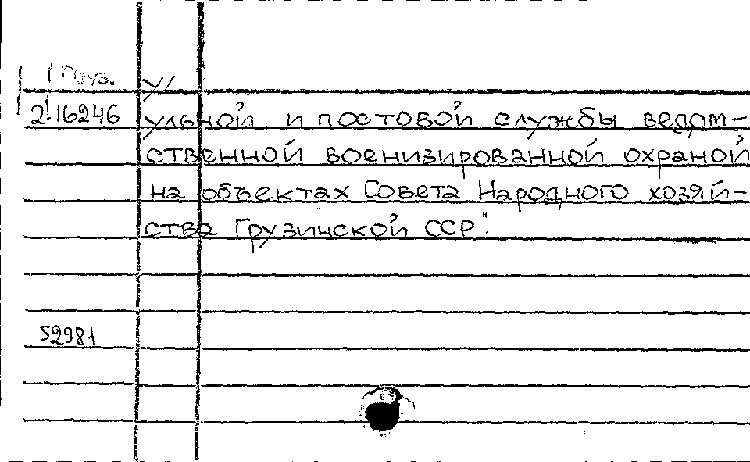 Груз. V/
2.16246 ульной и постовой службы ведом-
ственной военизированной охраной
на объектах Совета Народного хозяй-
ства Грузинской ССР".
52981